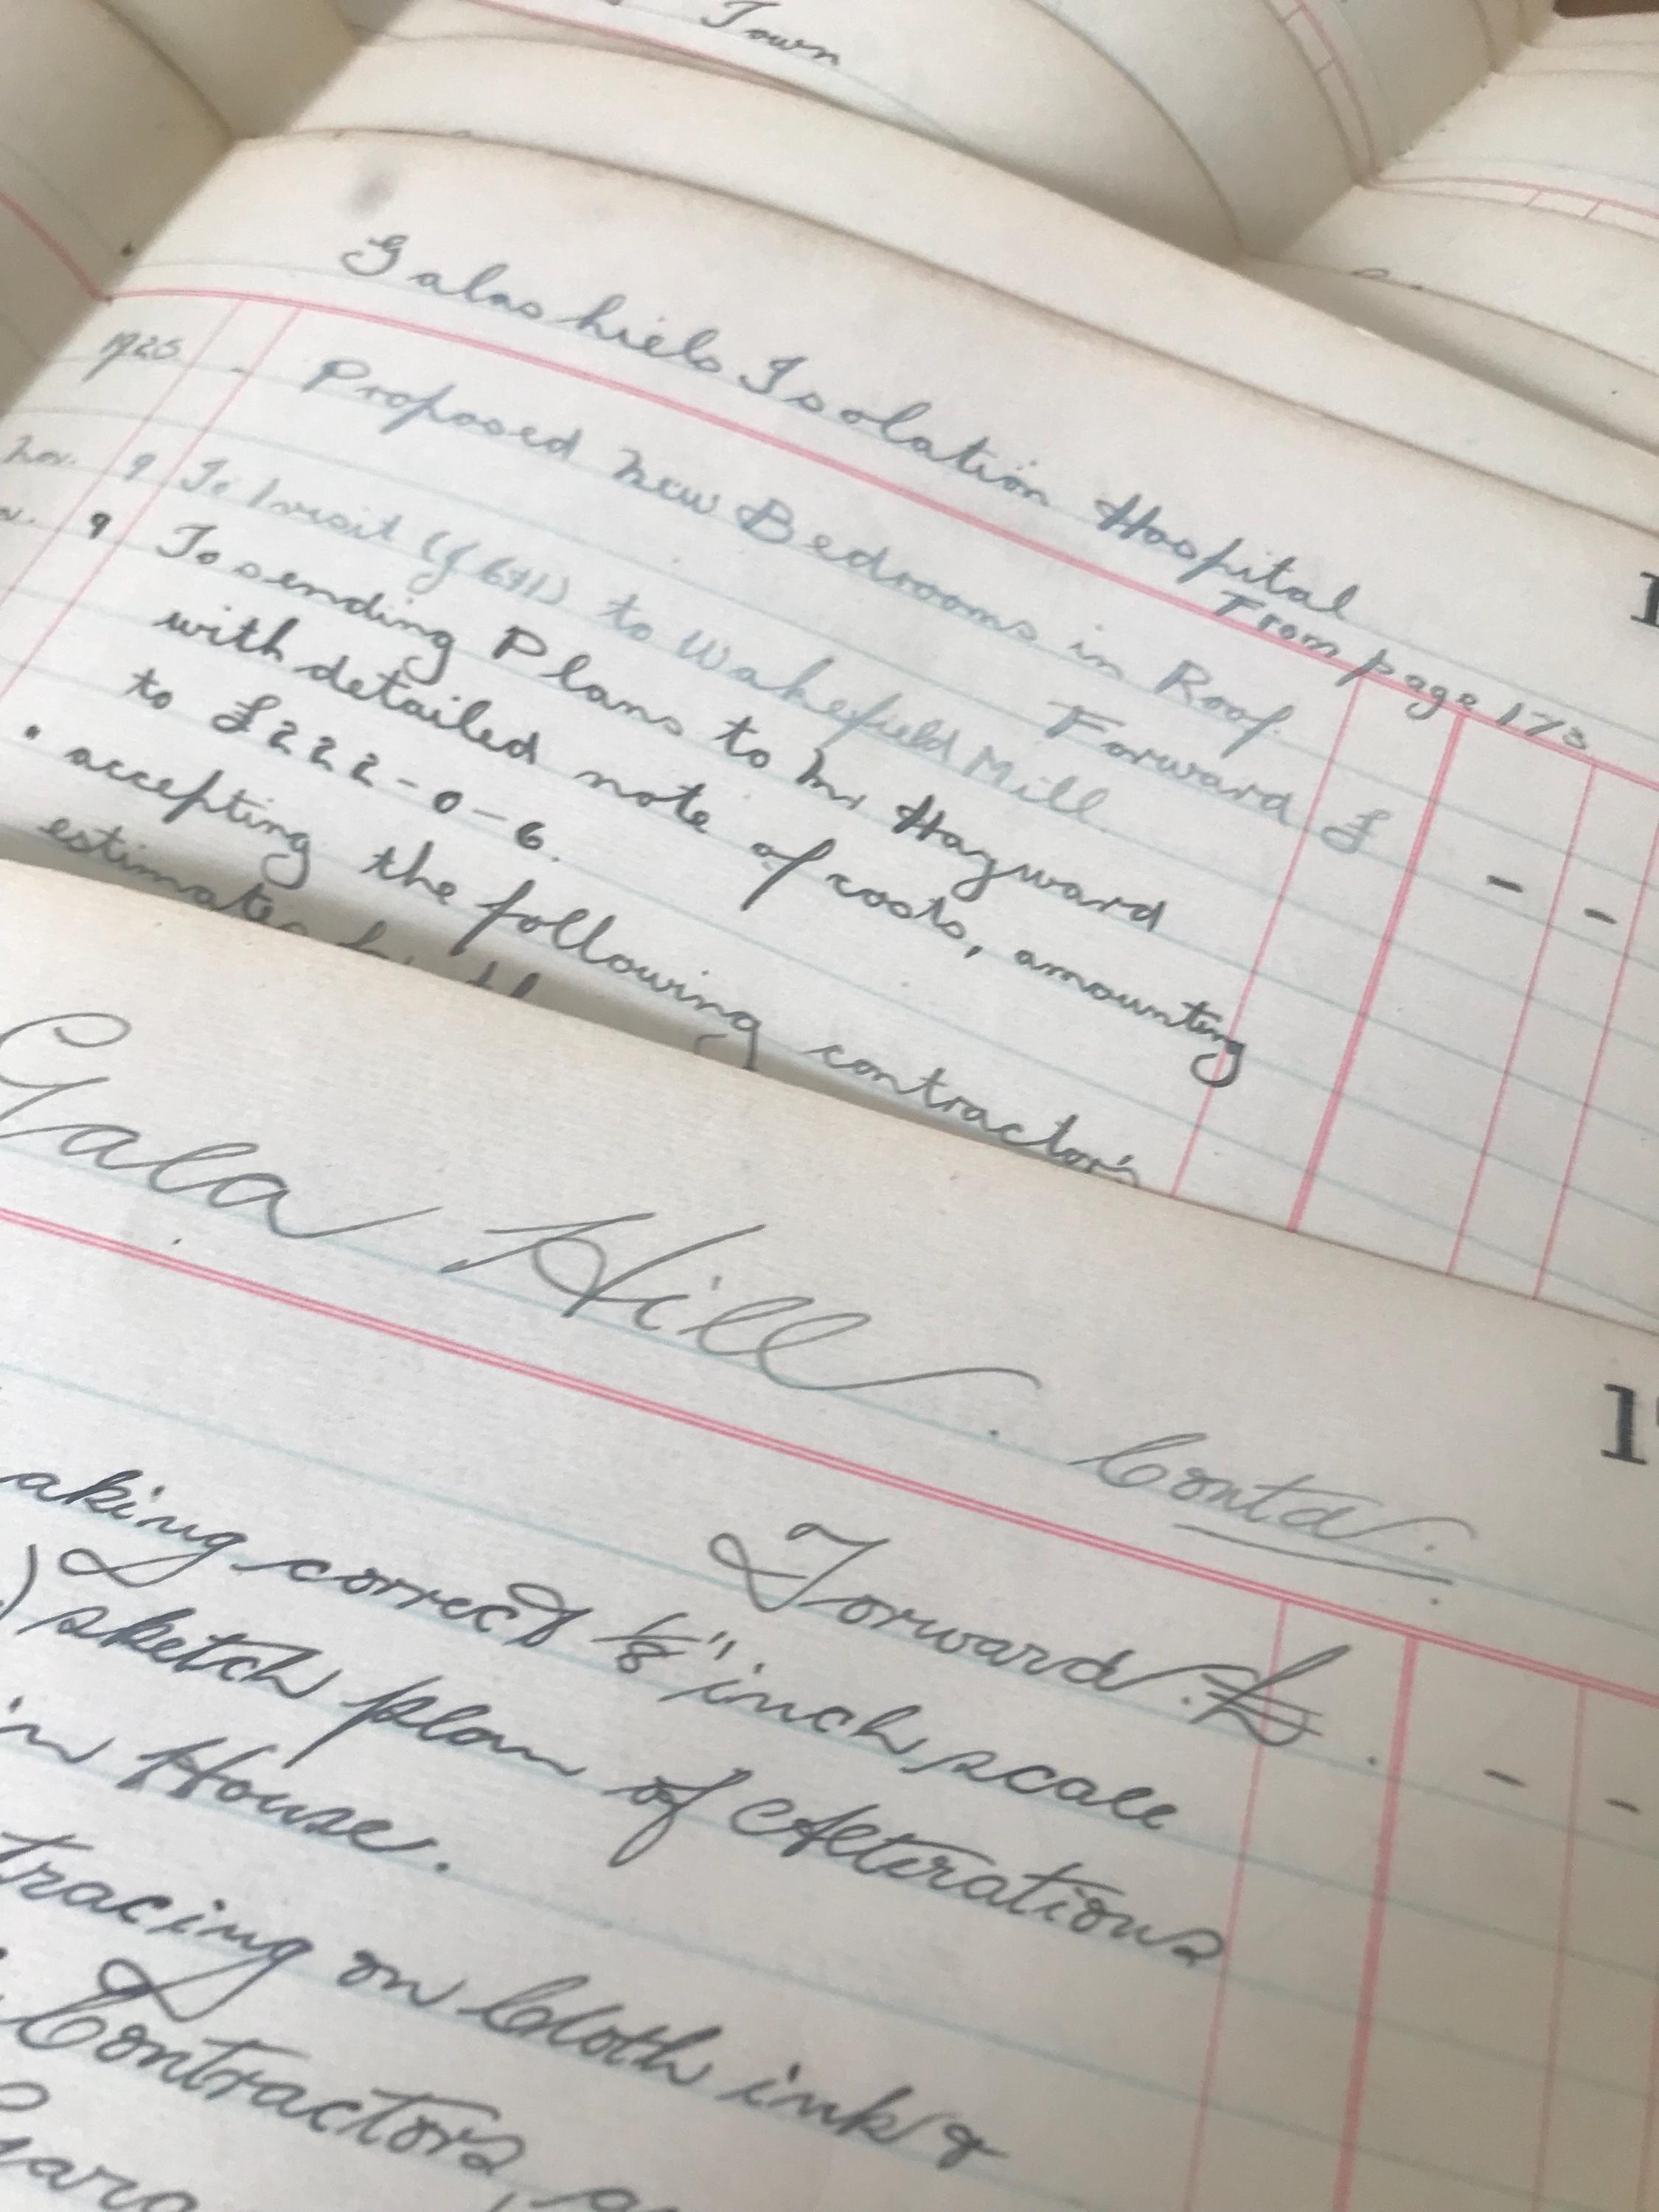 Town
Galashiels Isolation Hospital
From page 173
1925 Proposed New Bedrooms in Roof.
Forward £ - -
Nov. 9 To 1 visit to Wakefield Mill.
9 To sending Plans to Mr Hayward
with detailed note of costs, amounting
to £222-0-6.
accepting the following contractor's
estimates
Gala Hill. Contd.
Forward. £. - -
aking correct 1/8" inch scale
) sketch plan of Alterations
in House.
tracing on Cloth ink &
Contractors,